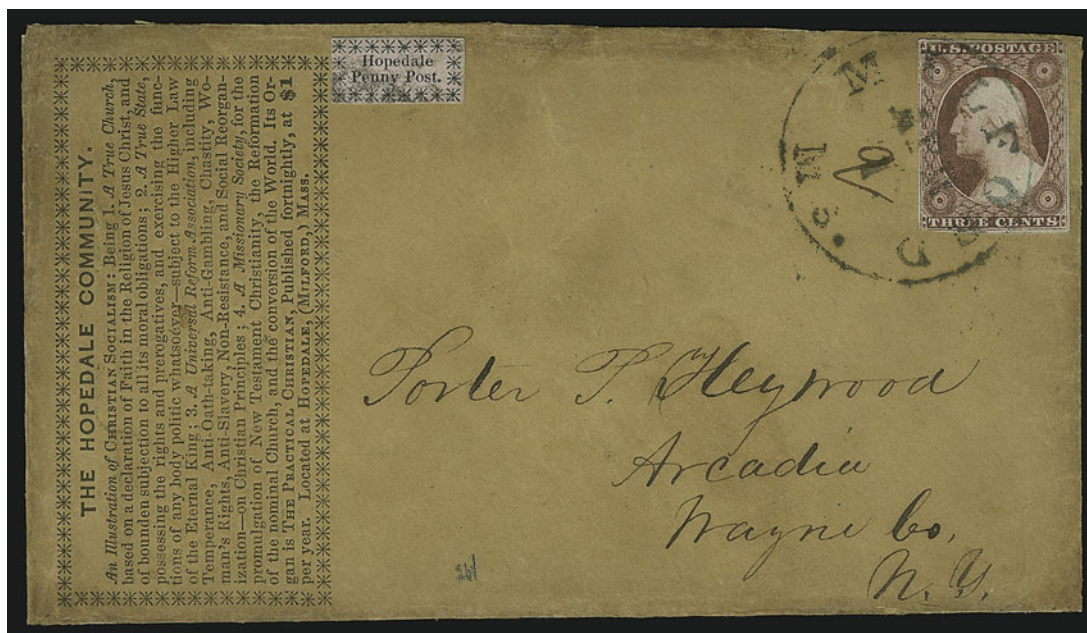 THE HOPEDALE COMMUNITY.
An Illustration of CHRISTIAN SOCIALISM: Being 1. A True Church,
based on a declaration of Faith in the Religion of Jesus Christ, and
of bounden subjection to all its moral obligations; 2. A True State,
possessing the rights and prerogatives, and exercising the func-
tions of any body politic whatsoever—subject to the Higher Law
of the Eternal King; 3. A Universal Reform Association, including
Temperance, Anti-Oath-taking, Anti-Gambling, Chastity, Wo-
man's Rights, Anti-Slavery, Non-Resistance, and Social Reorgan-
ization—on Christian Principles; 4. A Missionary Society, for the
promulgation of New Testament Christianity, the Reformation
of the nominal Church, and the conversion of the World. Its Or-
gan is THE PRACTICAL CHRISTIAN, Published fortnightly, at $1
per year. Located at HOPEDALE, (MILFORD,) MASS.
Hopedale
Penny Post.
U.S. POSTAGE
THREE CENTS
Porter T. Heywood
Arcadia
Wayne Co.
N. Y.